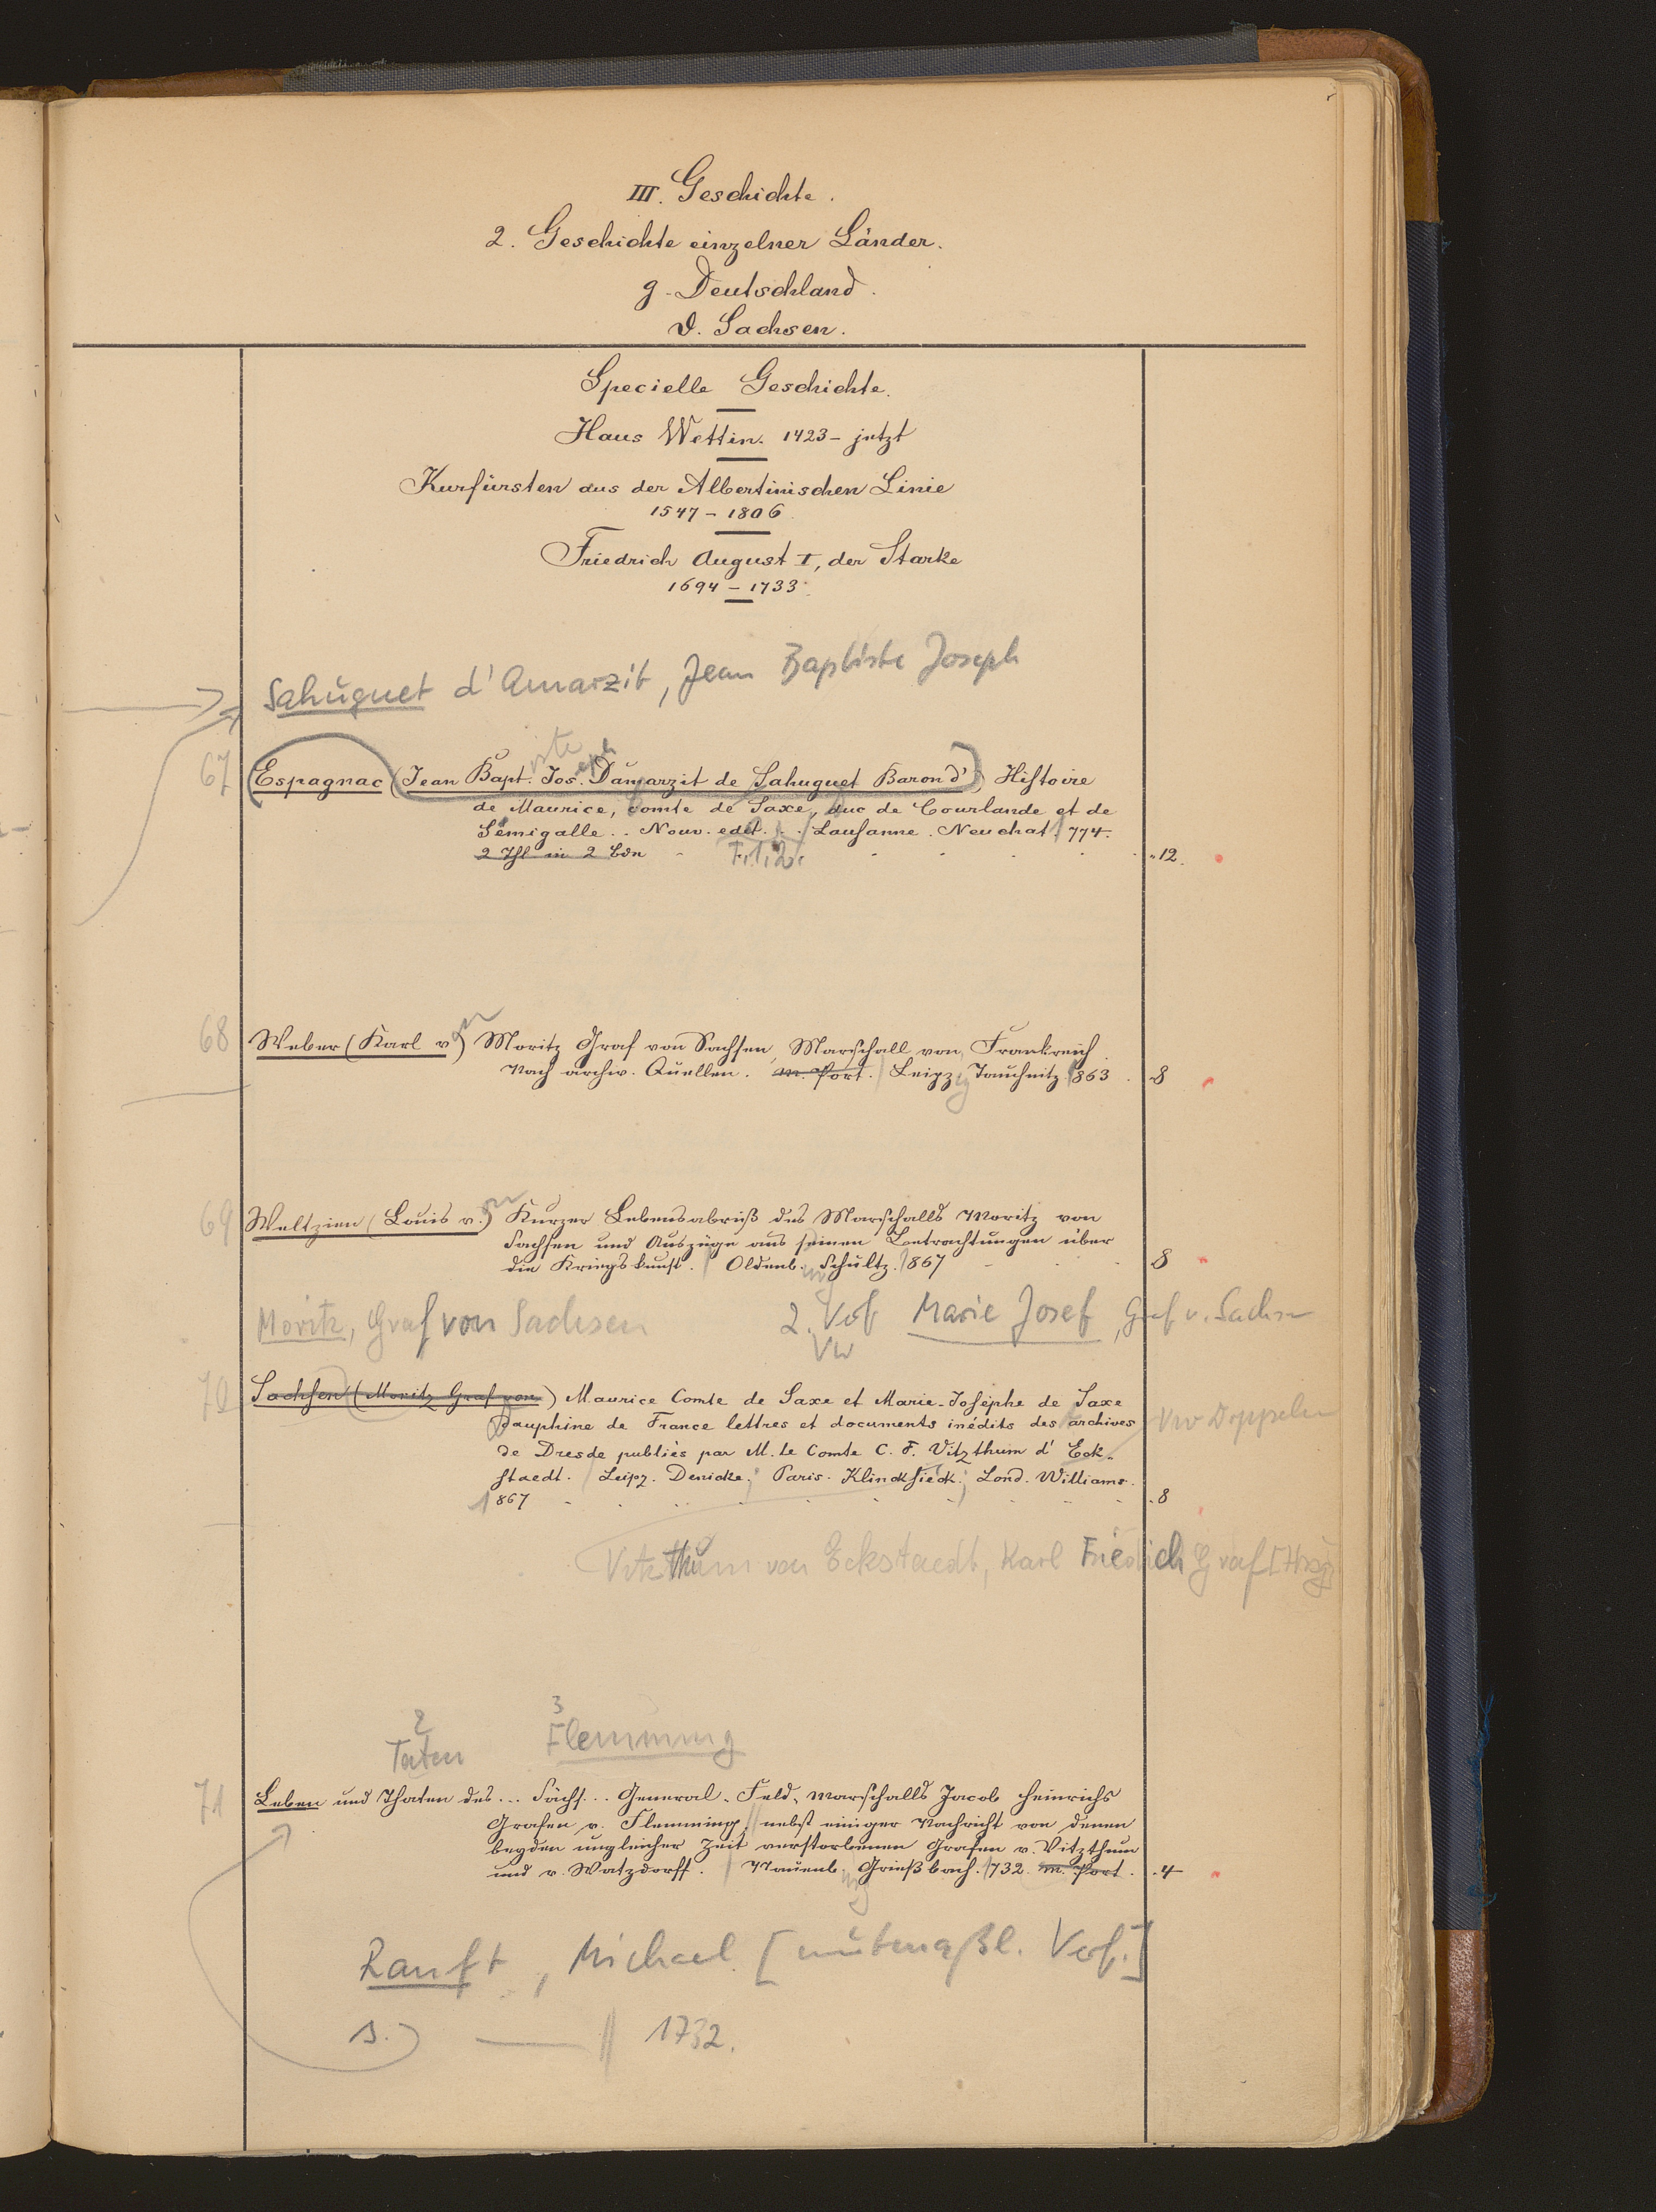 III. Geschichte.
2. Geschichte einzelner Länder.
g. Deutschland.
d. Sachsen.
Specielle Geschichte.
Haus Wettin. 1423 – jetzt
Kurfürsten aus der Albertinischen Linie
1547 – 1806
Friedrich August I, der Starke
1694 – 1733.
Sahuguet d'Amarzit, Jean Baptiste Joseph
67 Espagnac (Jean Bapt. Jos. Damarzit de Sahuguet Baron d') Histoire
iste eph
de Maurice, comte de Saxe, duc de Courlande et de
Sémigalle .. Nouv. edit. . . Lausanne. Neuchat. 774.
2 Thl in 2 Bdn T. 1. 2. 12.
68 Weber (Karl v.) Moritz Graf von Sachsen, Marschall von Frankreich.
on
Nach archiv. Quellen. m. Port. Leipzig Tauchnitz. 1863 . 8
69 Weltzien (Louis v.) Kurzer Lebensabriß des Marschalls Moritz von
on
Sachsen und Auszüge aus seinen Betrachtungen über
die Kriegskunst. Oldenb. Schultz. 1867 8
Moritz, Graf von Sachsen 2. Verf Marie Josef, Graf v. Sachsen
VW
70 Sachsen (Moritz Graf von) Maurice Comte de Saxe et Marie-Josèphe de Saxe
Dauphine de France lettres et documents inédits des archives VW Doppeln
de Dresde publiés par M. le Comte C. F. Vitzthum d' Eck-
staedt. Leipz. Denicke; Paris. Klincksieck; Lond. Williams.
1867 . 8
Vitzthum von Eckstaedt, Karl Friedrich Graf [Hrsg]
2 3
Taten Flemming
71 Leben und Thaten des ... Sächs... General-Feld-Marschalls Jacob Heinrichs
Grafen v. Flemming, nebst einiger Nachricht von denen
beyden ungleicher Zeit verstorbenen Grafen v. Vitzthum
und v. Watzdorff. Nauenb. Grießbach. 1732. m. Port. . 4
Ranft, Michael [mutmaßl. Verf.]
1732.